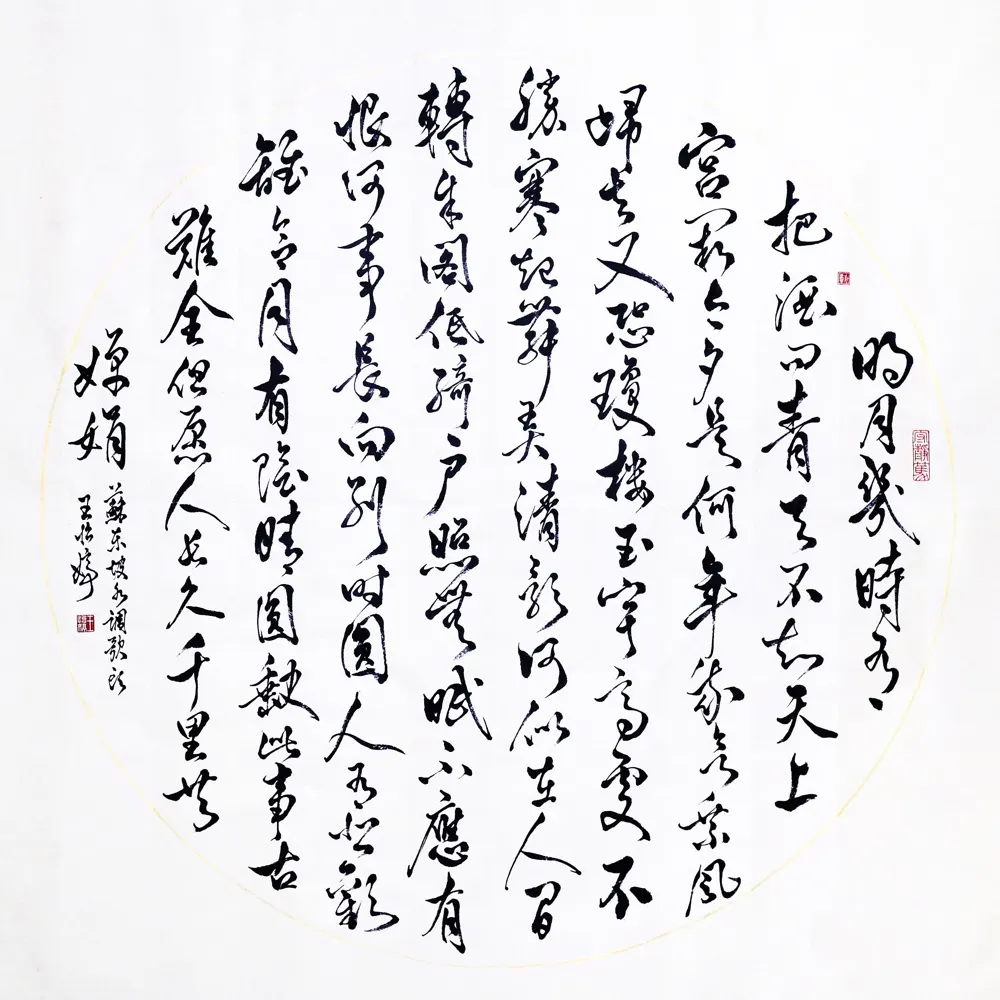 明月幾時有
把酒问青天不知天上
宮阙今夕是何年我欲乘風
歸去又恐瓊樓玉宇高處不
勝寒起舞弄清影何似在人间
轉朱阁低綺户照無眠不應有
恨何事長向别时圆人有悲歡
離合月有陰晴圆缺此事古
難全但愿人长久千里共
嬋娟
蘇东坡水调歌头
王怡婷